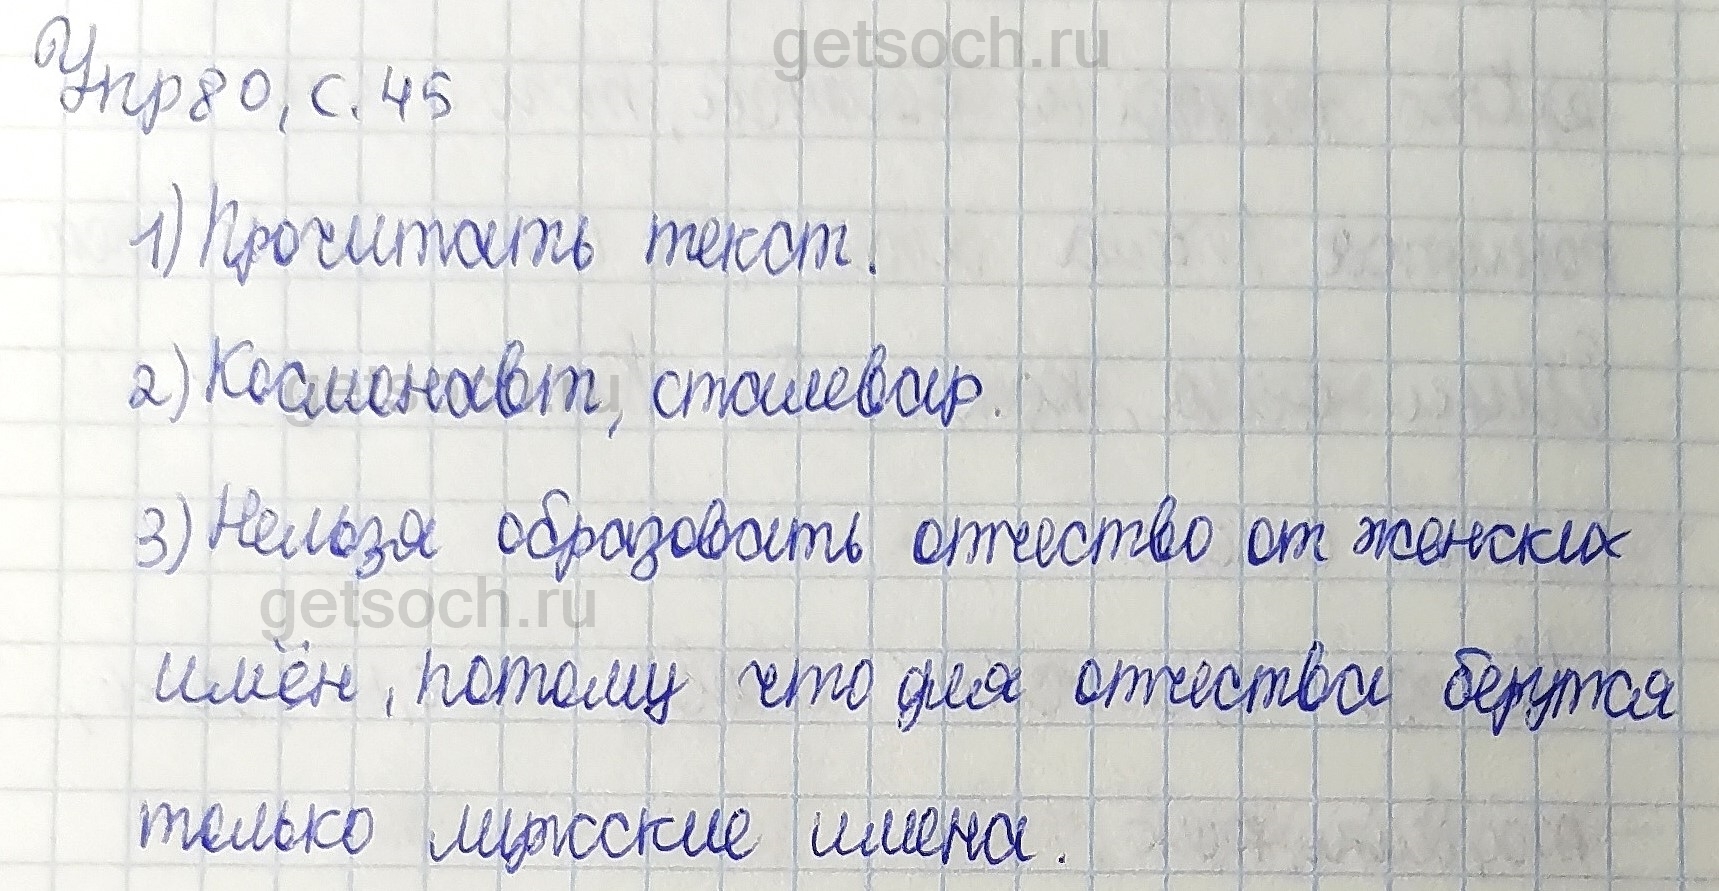 getsoch.ru
Упр 80, с. 45
1) Прочитать текст.
2) Космонавт, сталевар.
getsoch.ru
3) Нельзя образовать отчество от женских
getsoch.ru
имён, потому что для отчества берутся
только мужские имена.